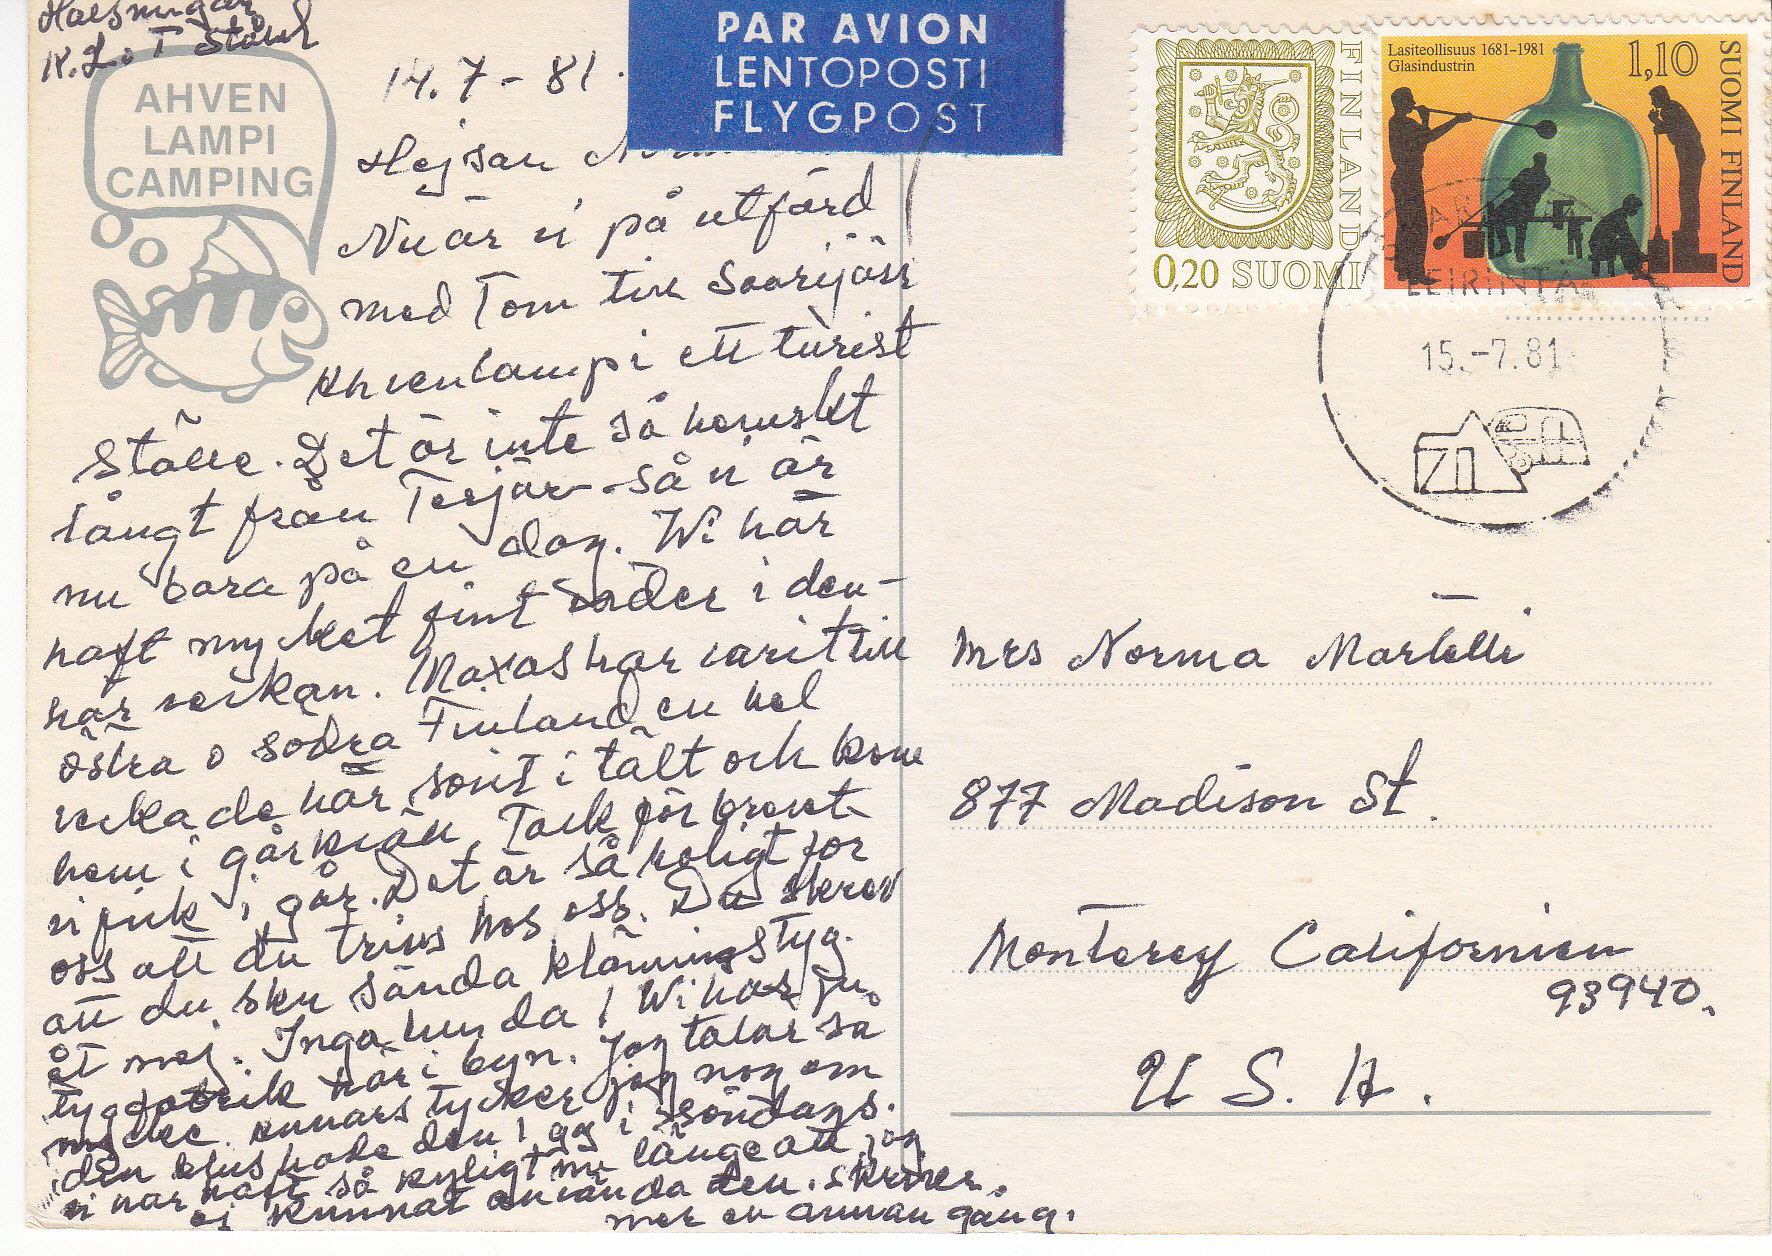 Hälsningar
K. L. o T Stål
AHVEN
LAMPI
CAMPING
14.7-81.
PAR AVION
LENTOPOSTI
FLYGPOST
Hejsan
Nu är vi på utfärd
med Tom till Saarijärvi
Ahvenlampi ett turist
ställe. Det är inte så hemskt
långt från Terjärv så vi är
nu bara på en dag. Wi har
haft mycket fint väder i den-
här veckan. Maxas har varit till
östra o södra Finland en hel
vecka de har sovit i tält och kom
hem i går kväll. Tack för brevet
vi fick i går. Det är så roligt för
oss att du trivs hos oss. Du skrev
att du sku sända klänningstyg
åt mej. Inga kunda! Wi har ju
tygfabrik här i byn. Jag talar så
mycke. Annars tycker jag nog om
den blus hade den 1 gg i söndags.
vi har haft så kyligt nu länge att jag
ej kunnat använda den. skriver
mer en annan gång.
FINLAND
0,20 SUOMI
Lasiteollisuus 1681-1981
Glasindustrin
1,10
SUOMI FINLAND
LEIRINTÄ
15.-7.81
Mrs Norma Martelli
877 Madison St.
Monterey Californien
93940.
U. S. A.